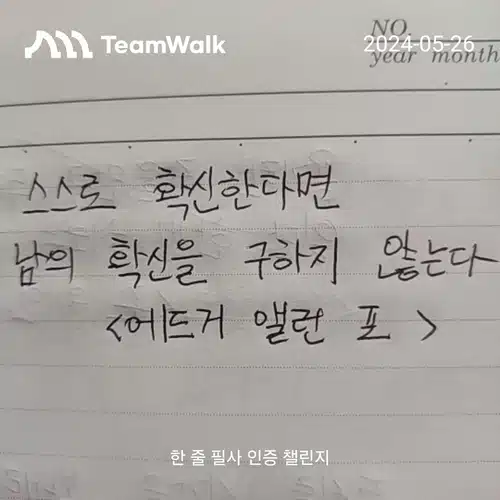 TeamWalk
2024-05-26
NO.
year month
스스로 확신한다면
남의 확신을 구하지 않는다
<에드거 앨런 포>
한 줄 필사 인증 챌린지